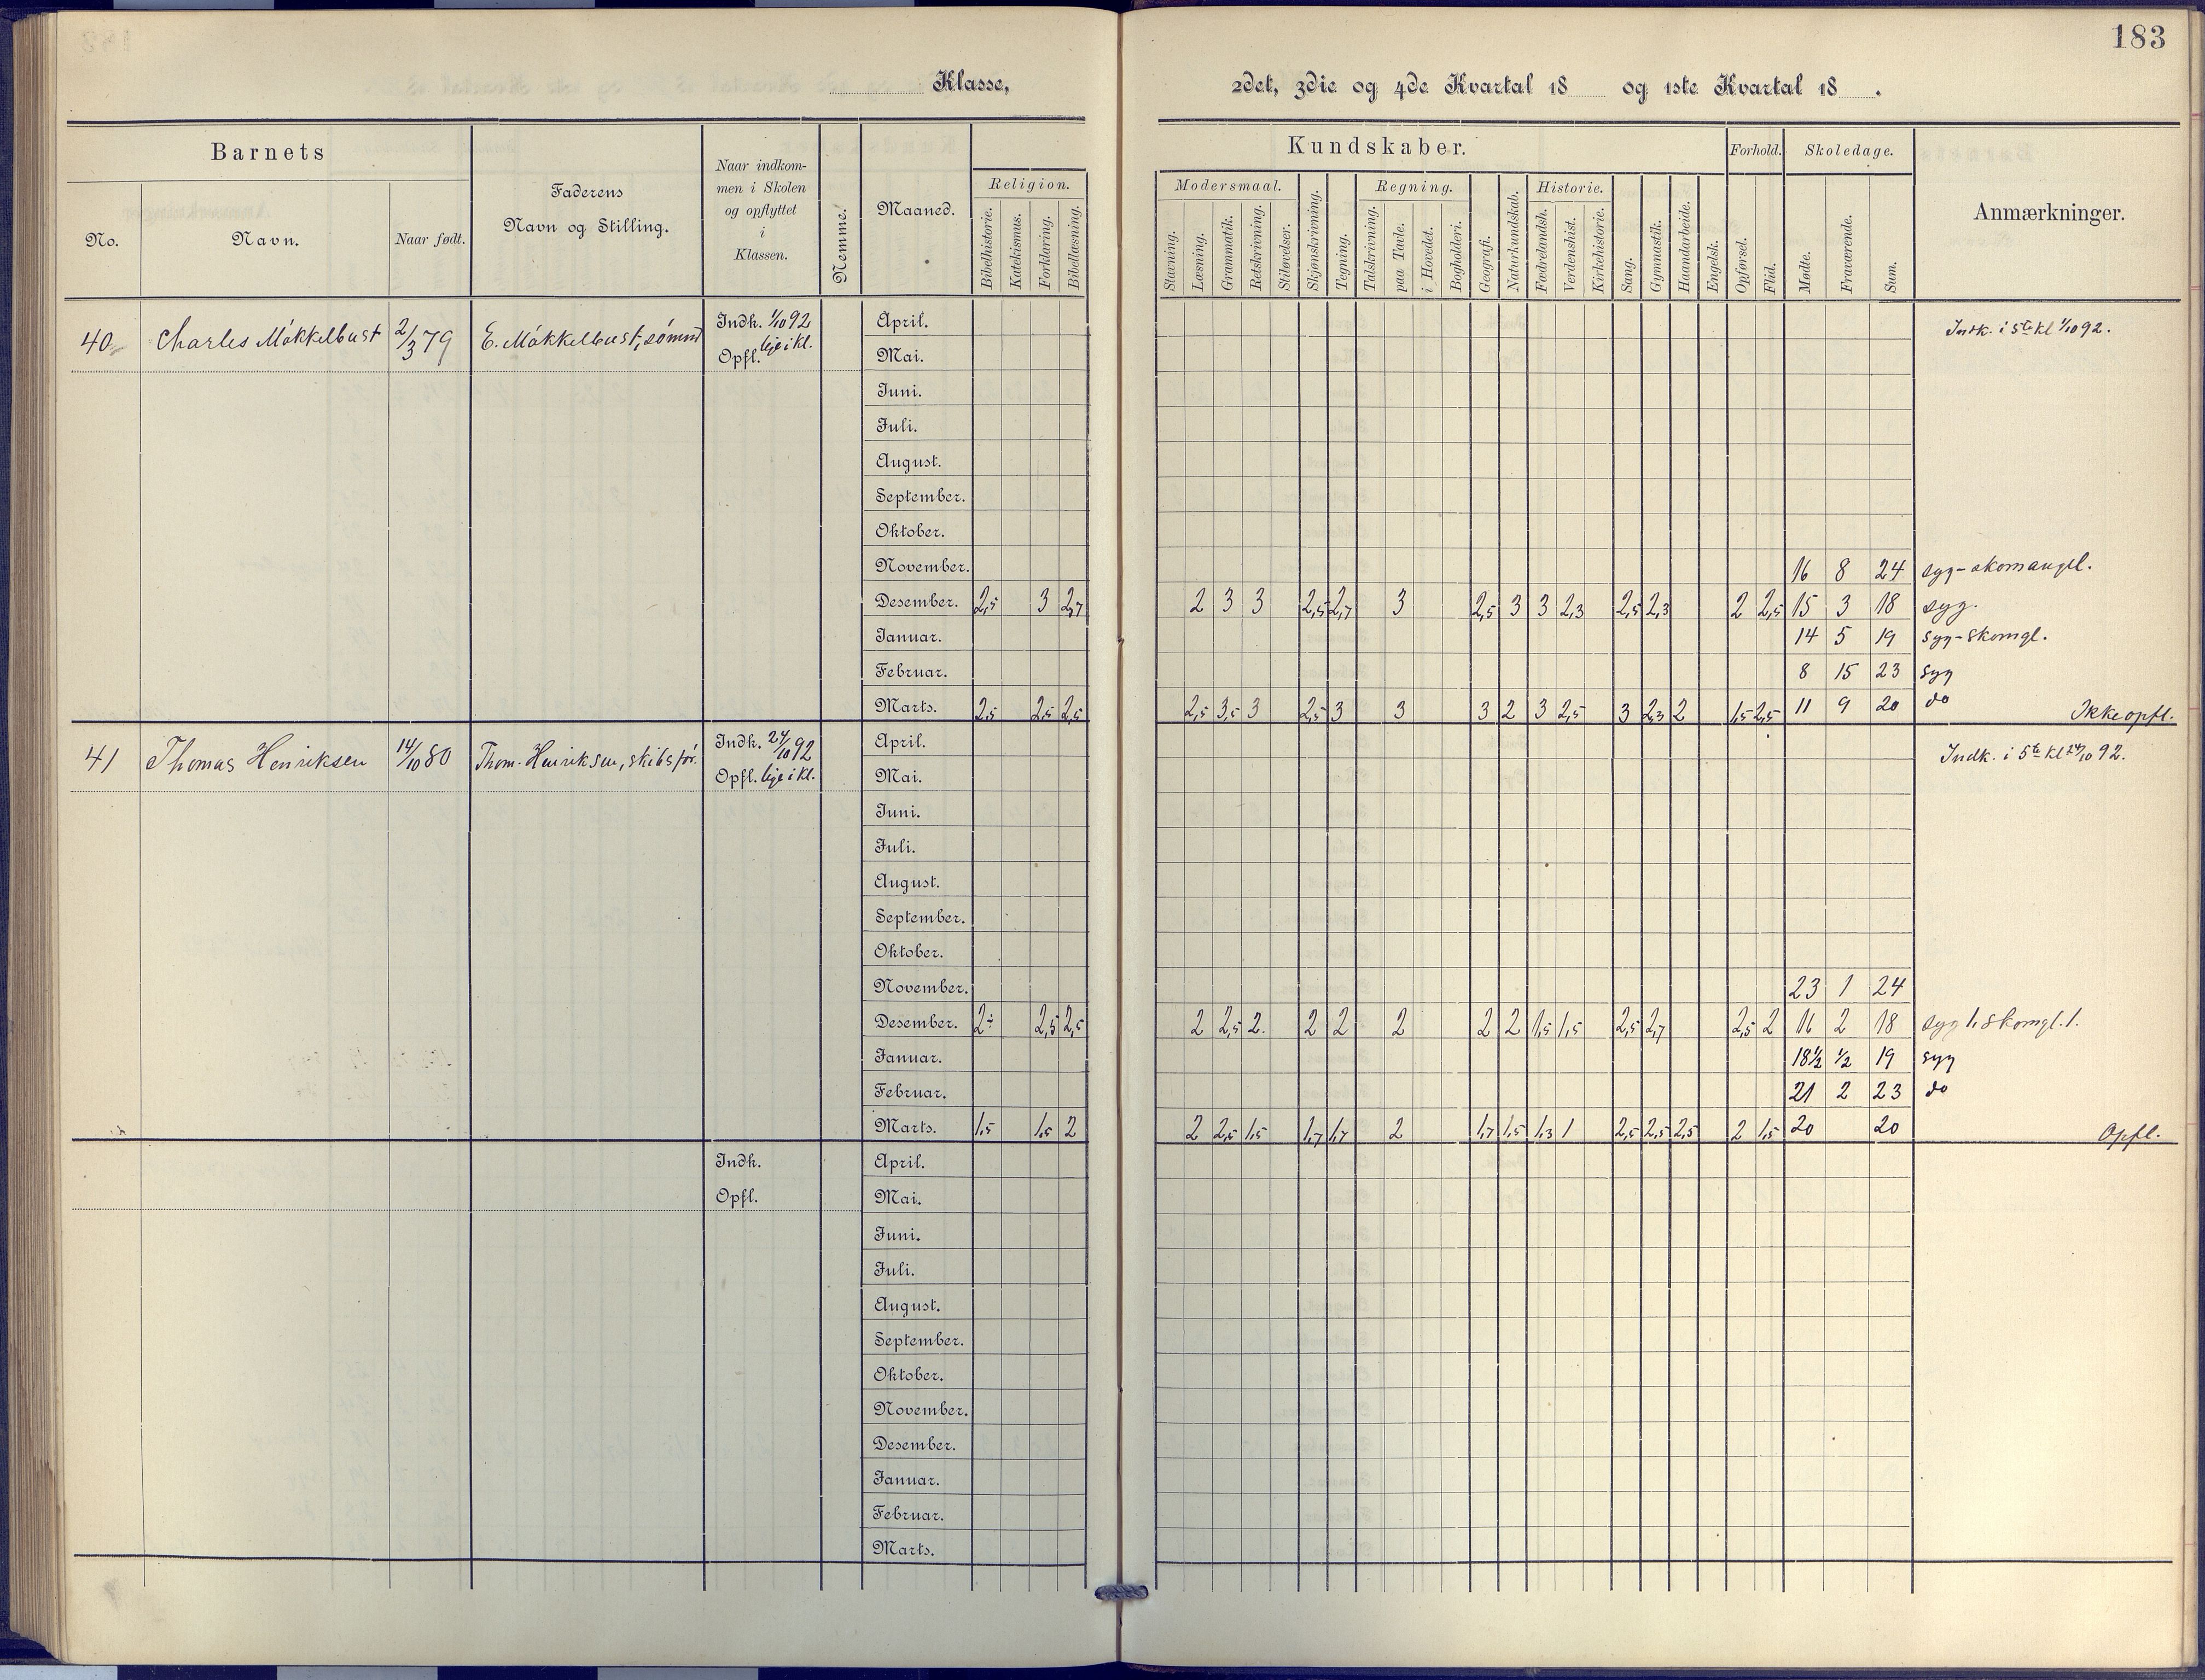 183
Klasse, 2det, 3die og 4de Kvartal 18 og 1ste Kvartal 18 .
Barnets
No.
Navn.
Naar født.
Faderens
Navn og Stilling.
Naar indkom-
men i Skolen
og opflyttet
i
Klassen.
Nemme.
Maaned.
Kundskaber.
Religion.
Bibelhistorie.
Katekismus.
Forklaring.
Bibellæsning.
Modersmaal.
Stavning.
Læsning.
Grammatik.
Retskrivning.
Stiløvelser.
Skjønskrivning.
Tegning.
Regning.
Talskrivning.
paa Tavle.
i Hovedet.
Bogholderi.
Geografi.
Naturkundskab.
Historie.
Fædrelandsh.
Verdenshist.
Kirkehistorie.
Sang.
Gymnastik.
Haandarbeide.
Engelsk.
Forhold.
Opførsel.
Flid.
Skoledage.
Mødte.
Fraværende.
Sum.
Anmærkninger.
40 Charles Mókkelbust 2/3 79 E. Mókkelbust, sómnd Indk. 1/10 92 April. Indk. i 5te kl 1/10 92.
Opfl. lige i kl. Mai.
Juni.
Juli.
August.
September.
Oktober.
November. 16 8 24 syg-skomangl.
Desember. 2,5 3 2,7 2 3 3 2,5 2,7 3 2,5 3 3 2,3 2,5 2,3 2 2,5 15 3 18 syg.
Januar. 14 5 19 syg-skomgl.
Februar. 8 15 23 syg
Marts. 2,5 2,5 2,5 2,5 3,5 3 2,5 3 3 3 2 3 2,5 3 2,3 2 1,5 2,5 11 9 20 do Ikke opfl.
41 Thomas Henriksen 14/10 80 Thom. Henriksen, skibsfór. Indk. 24/10 92 April. Indk. i 5te kl 24/10 92.
Opfl. lige i kl. Mai.
Juni.
Juli.
August.
September.
Oktober.
November. 23 1 24
Desember. 2÷ 2,5 2,5 2 2,5 2. 2 2 2 2 2 1,5 1,5 2,5 2,7 2,5 2 16 2 18 syg 1, skomgl. 1.
Januar. 18½ ½ 19 syg
Februar. 21 2 23 do
Marts. 1,5 1,5 2 2 2,5 1,5 1,7 1,7 2 1,7 1,5 1,3 1 2,5 2,5 2,5 2 1,5 20 20 Opfl.
Indk. April.
Opfl. Mai.
Juni.
Juli.
August.
September.
Oktober.
November.
Desember.
Januar.
Februar.
Marts.